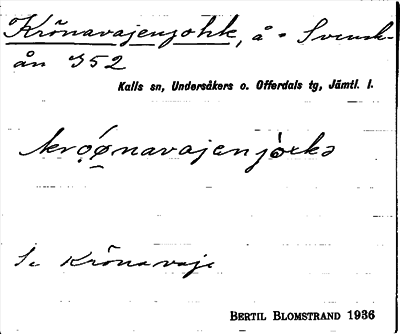 Krönavajenjohk, å = Svensk-
ån 352
Kalls sn, Undersåkers o. Offerdals tg, Jämtl. l.
krǫ́ǫnavajenjòckə
Se Krönavaje
BERTIL BLOMSTRAND 1936